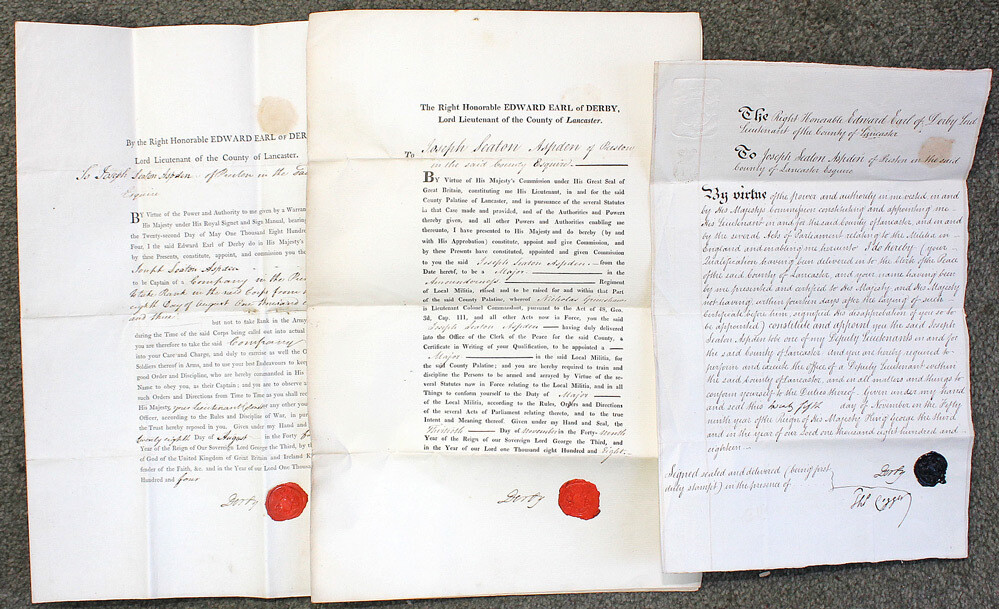 By the Right Honorable EDWARD EARL of DER
Lord Lieutenant of the County of Lancaster.
To Joseph Seaton Aspden of Preston in the
Esquire
BY Virtue of the Power and Authority to me given by a Warran
His Majesty under His Royal Signet and Sign Manual, bearing
the Twenty-second Day of May One Thousand Eight Hundred
Four, I the said Edward Earl of Derby do in His Majesty's
by these Presents, constitute, appoint, and commission you the said
Joseph Seaton Aspden
to be Captain of a Company in the
to take Rank in the said Corps from
eighth Day of August One thousand
and three
but not to take Rank in the Army
during the Time of the said Corps being called out into actual
you are therefore to take the said Company
into your Care and Charge, and duly to exercise as well the O
Soldiers thereof in Arms, and to use your best Endeavours to keep
good Order and Discipline, who are hereby commanded in His
Name to obey you, as their Captain; and you are to observe a
such Orders and Directions from Time to Time as you shall rece
His Majesty, your Lieutenant any other your
Officer, according to the Rules and Discipline of War, in pur
the Trust hereby reposed in you. Given under my Hand and
twenty eighth Day of August in the Forty
Year of the Reign of our Sovereign Lord George the Third, by th
of God of the United Kingdom of Great Britain and Ireland K
fender of the Faith, &c. and in the Year of our Lord One Thousa
Hundred and four
Derby
The Right Honorable EDWARD EARL of DERBY,
Lord Lieutenant of the County of Lancaster.
To Joseph Seaton Aspden of Preston
in the said County Esquire
BY Virtue of His Majesty's Commission under His Great Seal of
Great Britain, constituting me His Lieutenant, in and for the said
County Palatine of Lancaster, and in pursuance of the several Statutes
in that Case made and provided, and of the Authorities and Powers
thereby given, and all other Powers and Authorities enabling me
thereunto, I have presented to His Majesty and do hereby (by and
with His Approbation) constitute, appoint and give Commission, and
by these Presents have constituted, appointed and given Commission
to you the said Joseph Seaton Aspden from the
Date hereof, to be a Major in the
Amounderness Regiment
of Local Militia, raised and to be raised for and within that Part
of the said County Palatine, whereof Nicholas Grimshaw
is Lieutenant Colonel Commandant, pursuant to the Act of 48, Geo.
3d, Cap. III, and all other Acts now in Force, you the said
Joseph Seaton Aspden having duly delivered
into the Office of the Clerk of the Peace for the said County, a
Certificate in Writing of your Qualification, to be appointed a
Major in the said Local Militia, for
the said County Palatine; and you are hereby required to train and
discipline the Persons to be armed and arrayed by Virtue of the se-
veral Statutes now in Force relating to the Local Militia, and in all
Things to conform yourself to the Duty of Major
of the Local Militia, according to the Rules, Orders and Directions
of the several Acts of Parliament relating thereto, and to the true
Intent and Meaning thereof. Given under my Hand and Seal, the
Thirtieth Day of November in the Forty-Ninth
Year of the Reign of our Sovereign Lord George the Third, and
in the Year of our Lord One thousand eight Hundred and Eight
Derby
The Right Honorable Edward Earl of Derby Lord
Lieutenant of the County of Lancaster
To Joseph Seaton Aspden of Preston in the said
County of Lancaster Esquire
By virtue of the power and authority in me vested in and
by His Majestys Commission constituting and appointing me
His Lieutenant in and for the said County of Lancaster, and in and
by the several Acts of Parliament relating to the Militia in
England and enabling me hereunto I do hereby (your
Qualification having been delivered in to the Clerk of the Peace
of the said County of Lancaster, and your name having been
by me presented and certified to His Majesty, and His Majesty
not having, within fourteen days after the laying of such
Certificate before him, signified his disapprobation of you so to
be appointed) constitute and appoint you the said Joseph
Seaton Aspden to be one of my Deputy Lieutenants in and for
the said County of Lancaster and you are hereby required to
perform and execute the office of a Deputy Lieutenant within
the said County of Lancaster, and in all matters and things to
conform yourself to the Duties thereof. Given under my hand
and seal this twenty fifth day of November in the Fifty
ninth year of the Reign of His Majesty King George the third
and in the year of our Lord one thousand eight hundred and
eighteen
Signed sealed and delivered (being first
duly stampt) in the presence of
Derby